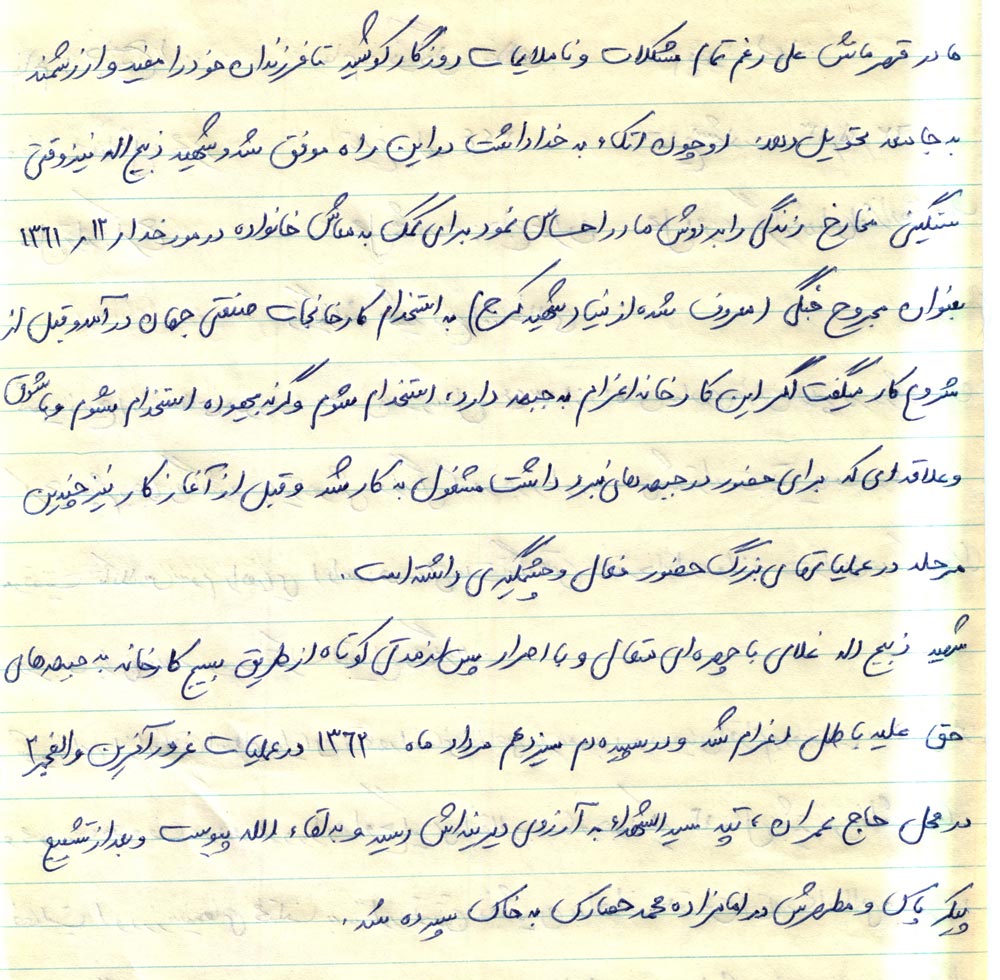 مادر قهرمانش علی رغم تمام مشکلات و ناملایمات روزگار کوشید تا فرزندان خود را مفید و ارزشمند
به جامعه تحویل دهد. او چون اتکاء به خدا داشت در این راه موفق شد و شهید ذبیح اله نیز وقتی
سنگینی مخارج زندگی را بر دوش مادر احساس نمود برای کمک به معاش خانواده در مورخه ۱۳۶۱
بعنوان مجروح جنگی (معروف شده از بنیاد شهید کرج) به استخدام کارخانجات صنعتی جهان در آمد و قبل از
شروع کار میگفت اگر این کارخانه اعزام به جبهه دارد، استخدام شوم وگرنه بیهوده استخدام نشوم و با شوق
و علاقه ای که برای حضور در جبهه های نبرد داشت مشغول به کار شد و قبل از آغاز کار نیز چندین
مرحله در عملیاتهای بزرگ حضور فعال و چشمگیری داشته است.
شهید ذبیح اله غلامی با چهره ای متعالی و با اصرار پس از مدتی کوتاه از طریق بسیج کارخانه به جبهه های
حق علیه باطل اعزام شد و در سپیده دم سیزدهم مرداد ماه ۱۳۶۲ در عملیات غرورآفرین والفجر ۲
در محل حاج عمران، تپه سیدالشهداء به آرزوی دیرینه اش رسید و به لقاء الله پیوست و بعد از تشییع
پیکر پاک و مطهرش در امامزاده محمد حصارک به خاک سپرده شد.